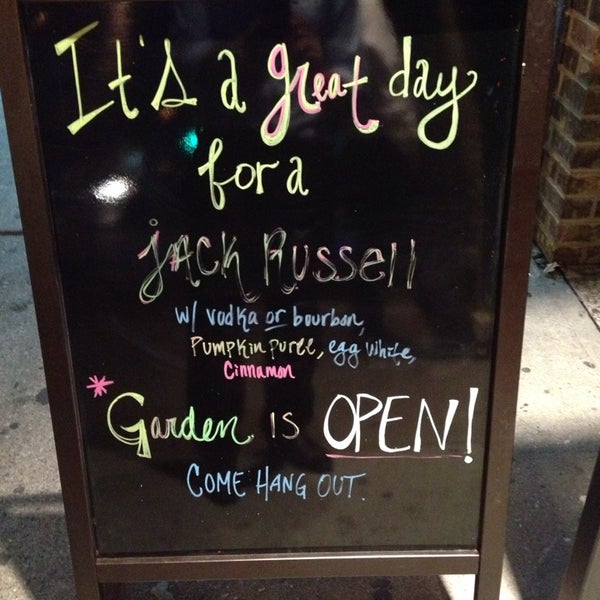 It's a great day
for a
Jack Russell
w/ vodka or bourbon,
Pumpkin puree, egg white,
Cinnamon
*Garden is OPEN!
COME HANG OUT.